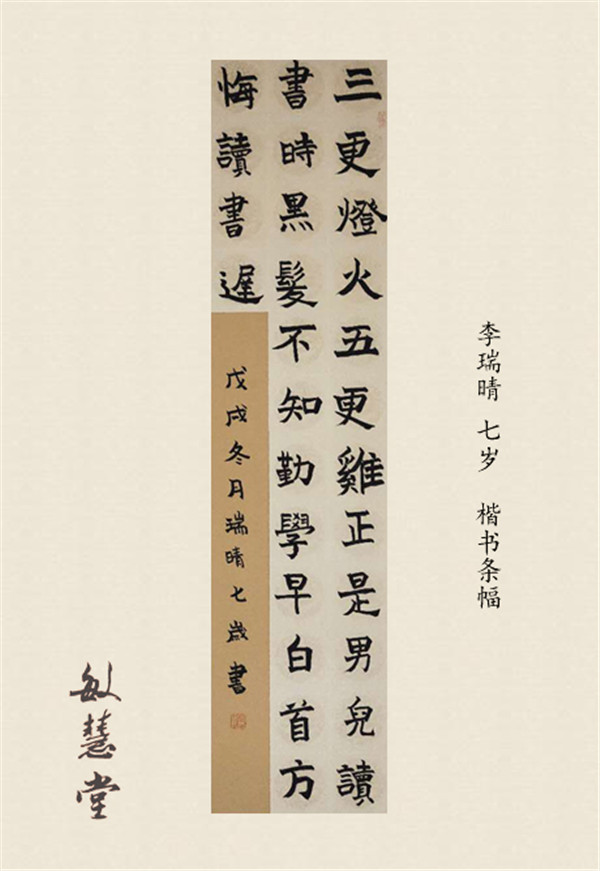 三更燈火五更雞正是男兒讀
書時黑髮不知勤學早白首方
悔讀書遲
戊戌冬月瑞晴七歲書
李瑞晴 七岁 楷书条幅
敏慧堂